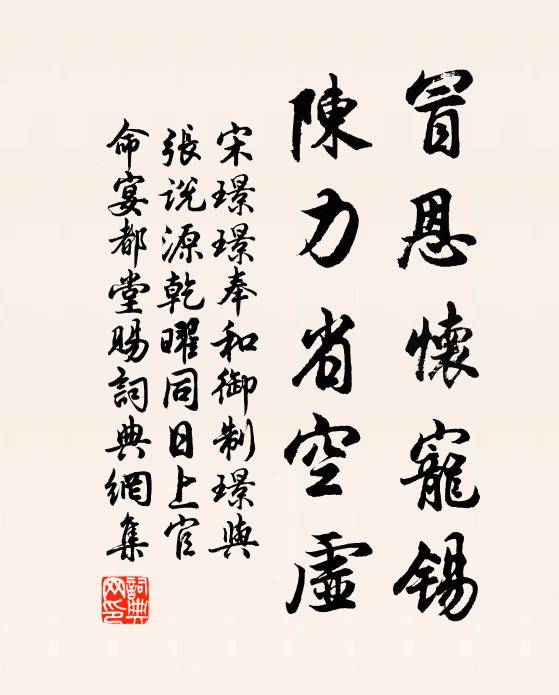 冒恩懷寵錫
陳力省空虛
宋璟璟奉和御制璟與
張説源乾曜同日上官
命宴都堂賜詞典網集
詞典网印